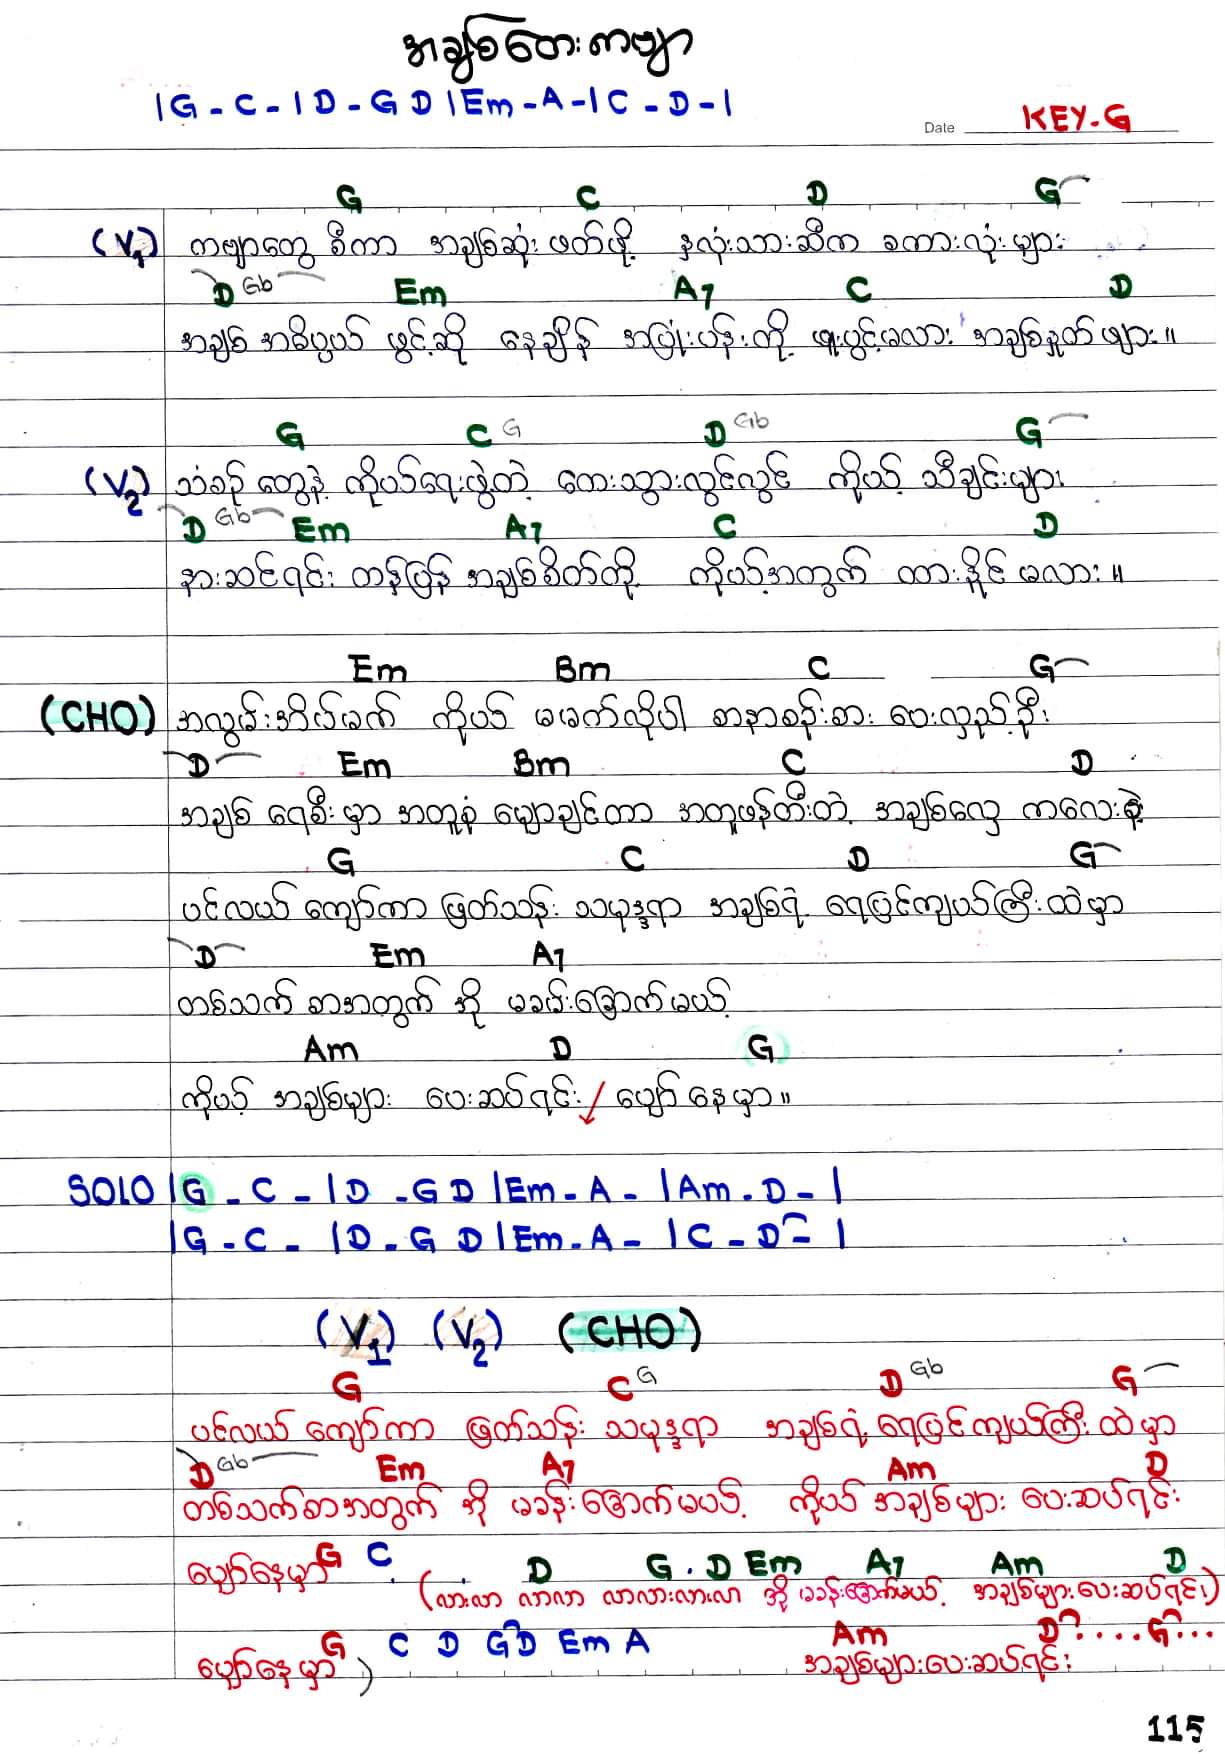 အချစ်တေးကဗျာ
|G - C - | D - G D | Em - A - | C - D - |
Date KEY-G
G C D G
(V1) ကဗျာတွေ စီကာ အချစ်ဆုံး ဖတ်ဖို့ နှလုံးသားဆီက စကားလုံးများ
D Gb Em A7 C D
အချစ် အဓိပ္ပယ် ဖွင့်ဆို နေချိန် အပြုံးပန်းကို ဖူးပွင့်မလား အချစ်နှုတ်ဖျား။
G C G D Gb G
(V2) သံစဉ် တွေနဲ့ ကိုယ်ရေးဖွဲ့တဲ့ တေးသွားလွင်လွင် ကိုယ့် သီချင်းများ
D Gb Em A7 C D
နားဆင်ရင်း တုန့်ပြန် အချစ်စိတ်ကို ကိုယ့်အတွက် ထားနိုင် မလား။
Em Bm C G
(CHO) အလွမ်းအိပ်မက် ကိုယ် မမက်လိုပါ စာနာစဉ်းစား ပေးလှည့်ဦး
D Em Bm C D
အချစ် ရေစီးမှာ အတူစုံ မျောချင်တာ အတူဖန်တီးတဲ့ အချစ်လှေ ကလေးနဲ့
G C D G
ပင်လယ် ကျော်ကာ ဖြတ်သန်း သမုဒ္ဒရာ အချစ်ရဲ့ ရေပြင်ကျယ်ကြီးထဲမှာ
D Em A7
တစ်သက် စာအတွက် အို မခန်းခြောက်မယ့်
Am D G
ကိုယ့် အချစ်များ ပေးဆပ်ရင်း / ပျော်နေမှာ။
SOLO |G - C - | D - G D |Em - A - |Am - D - |
|G - C - |D - G D |Em - A - |C - D - |
(V1) (V2) (CHO)
G C G D Gb G
ပင်လယ် ကျော်ကာ ဖြတ်သန်း သမုဒ္ဒရာ အချစ်ရဲ့ ရေပြင်ကျယ်ကြီးထဲမှာ
D Gb Em A7 Am D
တစ်သက်စာအတွက် အို မခန်းခြောက်မယ့် ကိုယ် အချစ်များ ပေးဆပ်ရင်း
G C D G . D Em A7 Am D
ပျော်နေမှာ (လားလာ လာလာ လာလားလားလာ အို မခန်းခြောက်မယ့် အချစ်များပေးဆပ်ရင်း)
G C D G D Em A Am D....G...
ပျော်နေမှာ) အချစ်များပေးဆပ်ရင်း
115